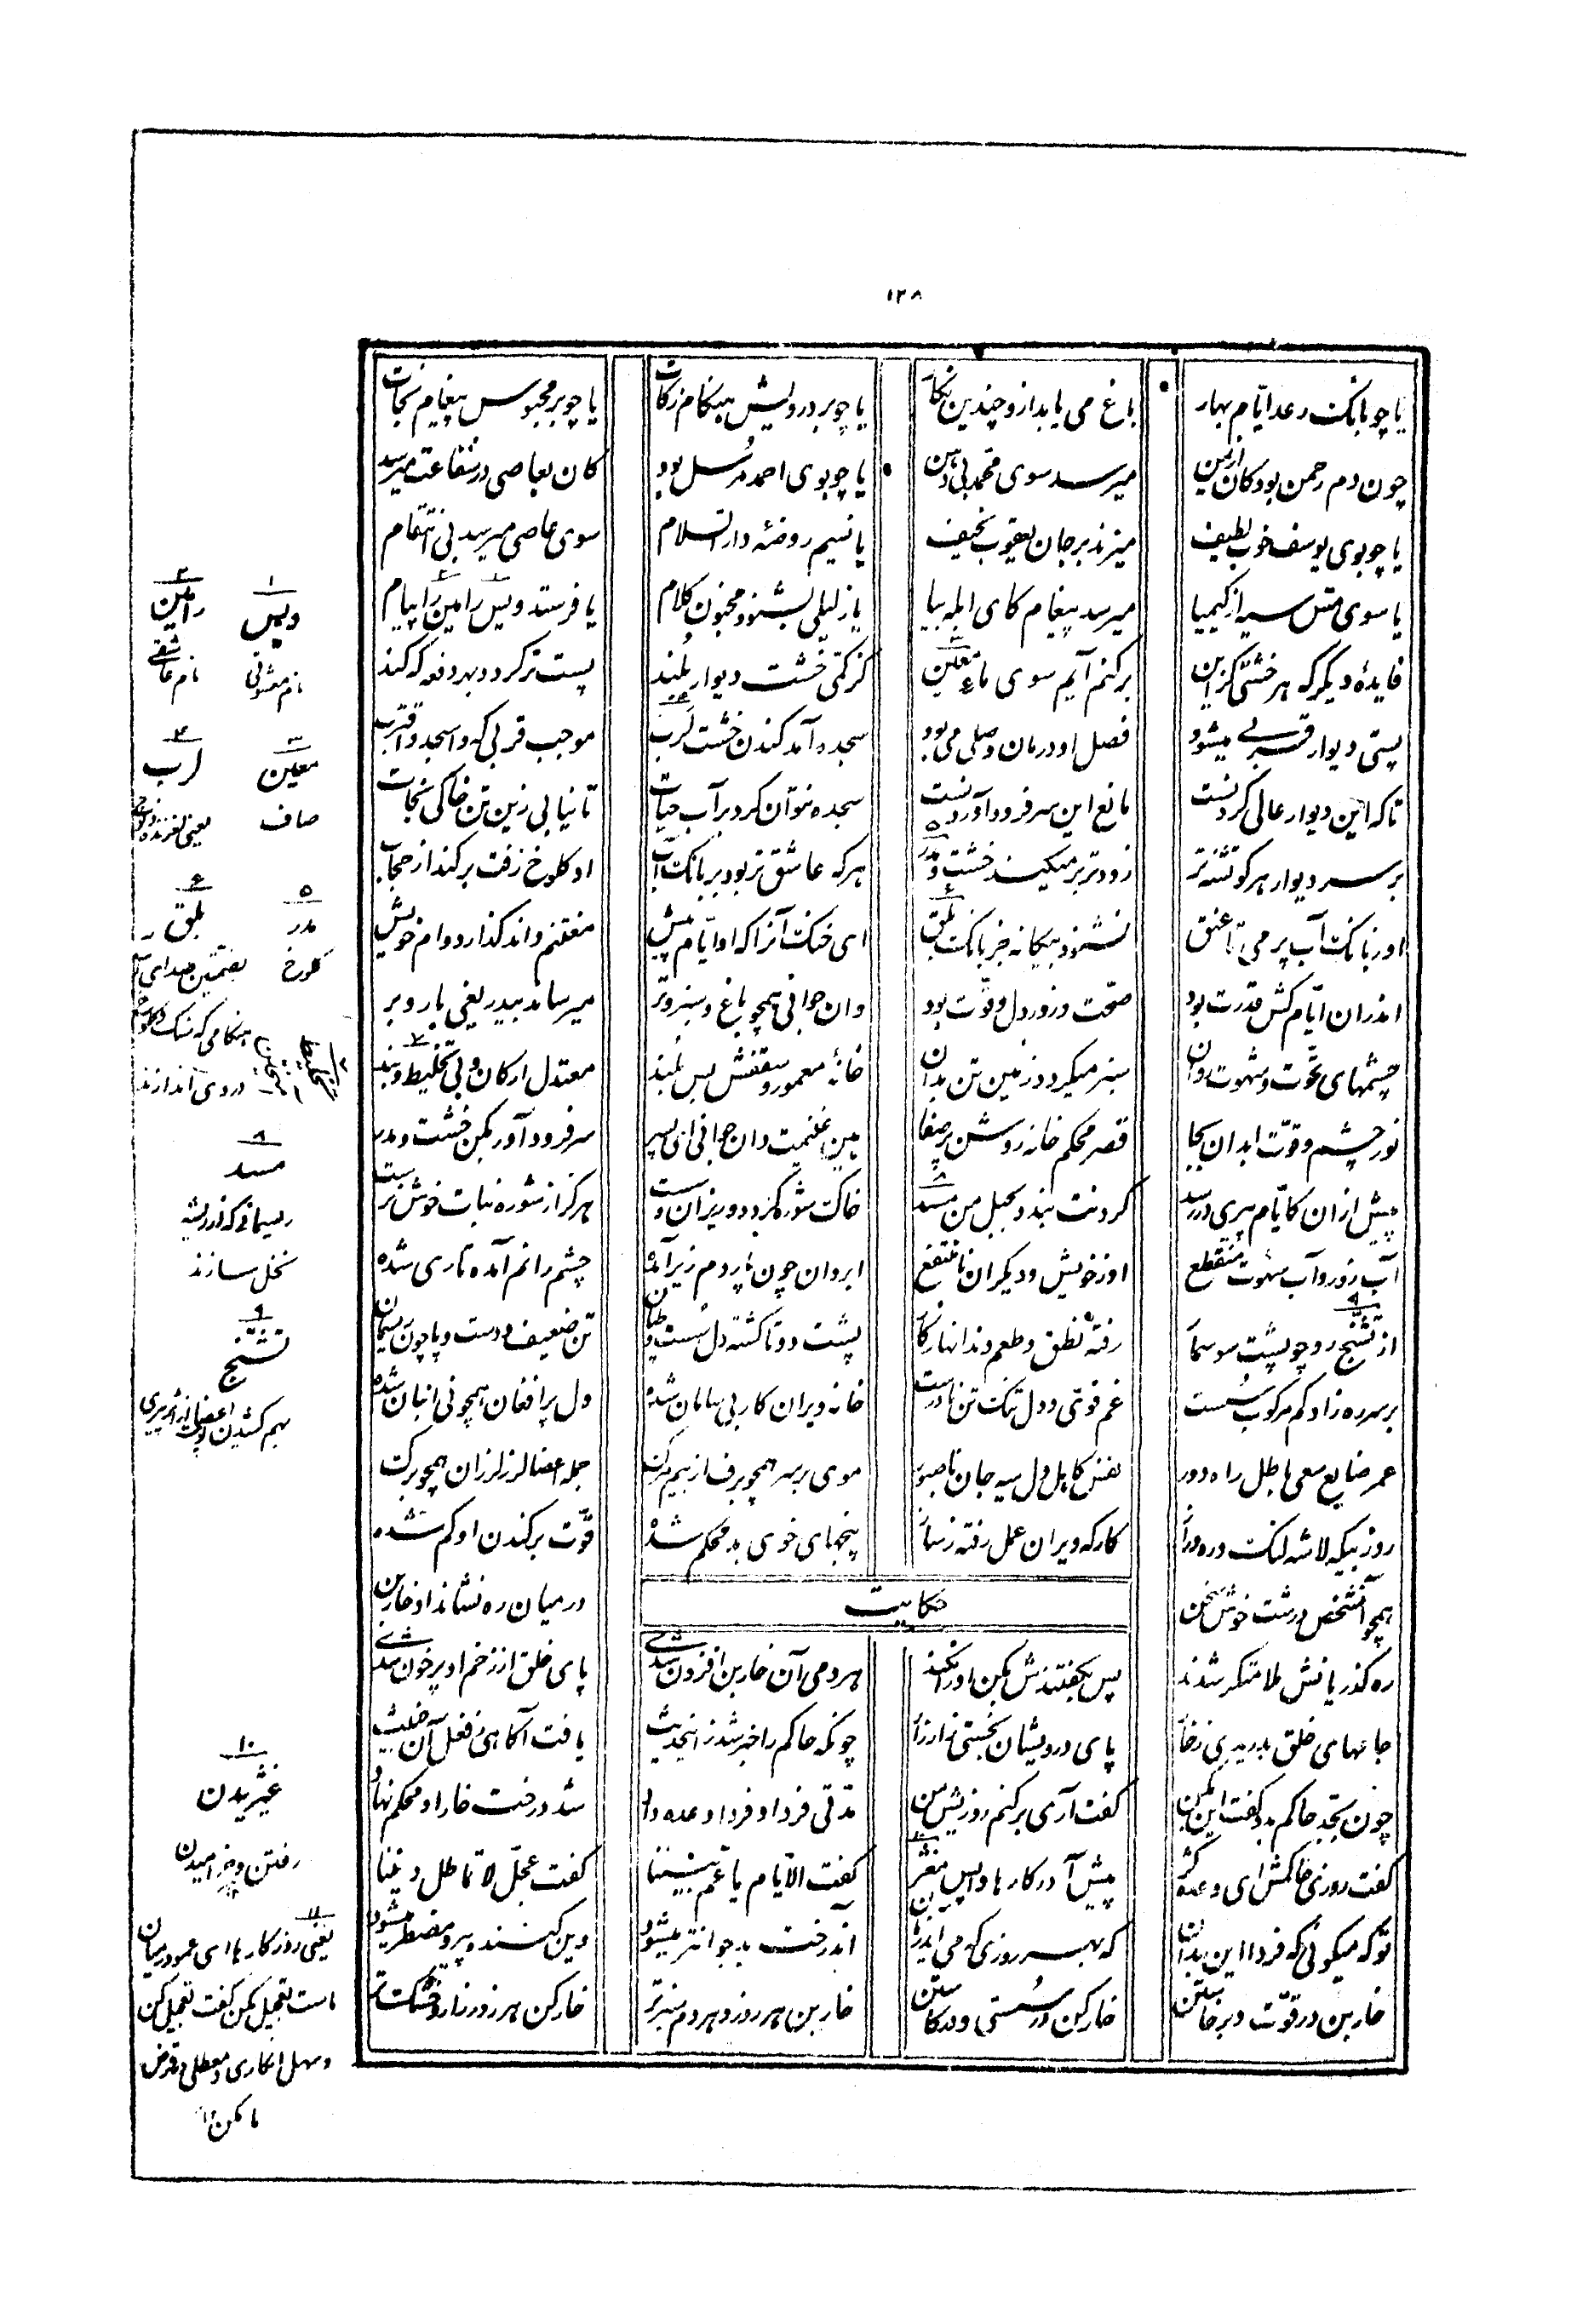 ۱۲۸
یا چو بانگ رعد ایّام بهار باغ می یابد ازو چندین نگار
یا چو بر درویش هنگام زکات یا چو بر محبوس پیغام نجات
چون دم رحمن بود کان از یمن میرسد سوی محمد بی دهن
یا چو بوی احمد مُرسل بود کان بعاصی در شفاعت میرسد
یا چو بوی یوسف خوب لطیف میزند بر جان یعقوب نحیف
یا نسیم روضهٔ دار السلام سوی عاصی میرسد بی انتقام
یا سوی مس سیه از کیمیا میرسد پیغام کای ابله بیا
یا ز لیلی بشنود مجنون کلام یا فرستد ویس رامین را پیام
فایدهٔ دیگر که هر خشتی کزین برکنم آیم سوی ماء معین
کز کمّی خشت دیوار بلند پست تر گردد بهر دفعه که کند
پستی دیوار قربی میشود فصل او درمان وصلی می بود
سجده آمد کندن خشت لَزِب موجب قربی که واسجد واقترب
تا که این دیوار عالی گردنست مانع این سر فرود آوردنست
سجده نتوان کرد بر آب حیات تا نیابی زین تن خاکی نجات
بر سر دیوار هر کو تشنه تر زودتر بر میکند خشت و مدر
هر که عاشق تر بود بر بانگ آب او کلوخ زفت برکند از حجاب
او ز بانگ آب پر می تا عنق نشنود بیگانه جز بانگ بلق
ای خنک آنرا که او ایّام پیش مغتنم داند گذارد وام خویش
اندران ایّام کش قدرت بود صحّت و زور دل و قوّت بود
وان جوانی همچو باغ و سبز و تر میرساند بیدریغی بار و بر
چشمهای قوّت و شهوت روان سبز میگردد زمین تن بدان
خانهٔ معمور و سقفش بس بلند معتدل ارکان و بی تخلیط و بند
نور چشم و قوّت ابدان بجا قصر محکم خانه روشن پر صفا
هین غنیمت دان جوانی ای پسر سر فرود آور بکن خشت و مدر
پیش ازان کایّام پیری در رسد گردنت بندد بحبل من مسد
خاک شوره گردد و ریزان و سست هرگز از شوره نبات خوش نرست
آب زور و آب شهوت منقطع او ز خویش و دیگران نا منتفع
ابروان چون پاردم زیر آمده چشم را نم آمده تاری شده
از تشنّج رو چو پشت سوسمار رفته نطق و طعم و دندانها ز کار
پشت دوتا گشته دل سست و طپان تن ضعیف و دست و پا چون ریسمان
بر سر ره زاد کم مرکوب سست غم قوّی و دل تنگ تن نادرست
خانه ویران کار بی سامان شده دل پر افغان همچو نی انبان شده
عمر ضایع سعی باطل راه دور نفس کاهل دل سیه جان ناصبور
موی بر سر همچو برف از بیم مرگ جمله اعضا لرز لرزان همچو برگ
روز بیگه لاشه لنگ و ره دراز کارگه ویران عمل رفته ز ساز
بیخهای خوی بد محکم شده قوّت برکندن او کم شده
حکایت
همچو آنشخص درشت خوش سخن در میان ره نشاند او خاربن
ره گذریانش ملامتگر شدند پس بگفتندش بکن او را نکند
هر دمی آن خاربن افزون شدی پای خلق از زخم او پر خون شدی
جامهای خلق بدریدی ز خار پای درویشان بخستی زار زار
چونکه حاکم را خبر شد زانحدیث یافت آگاهی ز فعل آن خبیث
چون بجد حاکم بدو گفت این بکن گفت آری برکنم روزیش من
مدّتی فردا و فردا وعده داد شد درخت خار او محکم نهاد
گفت روزی حاکمش ای وعده کژ پیش آ در کار ما واپس مغژ
گفت الایّام یا عَمّ بیننا گفت عجّل لا تماطل دیننا
تو که میگوئی که فردا این بدان که بهر روزی که می آید زمان
آندرخت بد جوانتر میشود وین کننده پیر و مضطر میشود
خاربن در قوّت و برخاستن خارکن در سُستی و در کاستن
خاربن هر روز و هر دم سبزتر خارکن هر روز زار و خشک تر
۱ ویس
نام معشوقی
۲ رامین
نام عاشقی
۳ معین
صاف
۴ لزب
یعنی لغزنده
۵ مدر
کلوخ
۶ بلق
بضمتین صدای
هنگامی که سنگ
در وی اندازند
۷ تخلیط
۸ مسد
ریسمانی که از لیف
نخل سازند
۹ تشنّج
بهم کشیدن پوست اعضا از اثر پیری
۱۰ غژیدن
رفتن و خزامیدن
۱۱ یعنی روزگارها ای عمو درمیان
ماست تعجیل بکن گفت تعجیل کن
و سهل انگاری و معطلی در قرض
ما مکن ۱۲